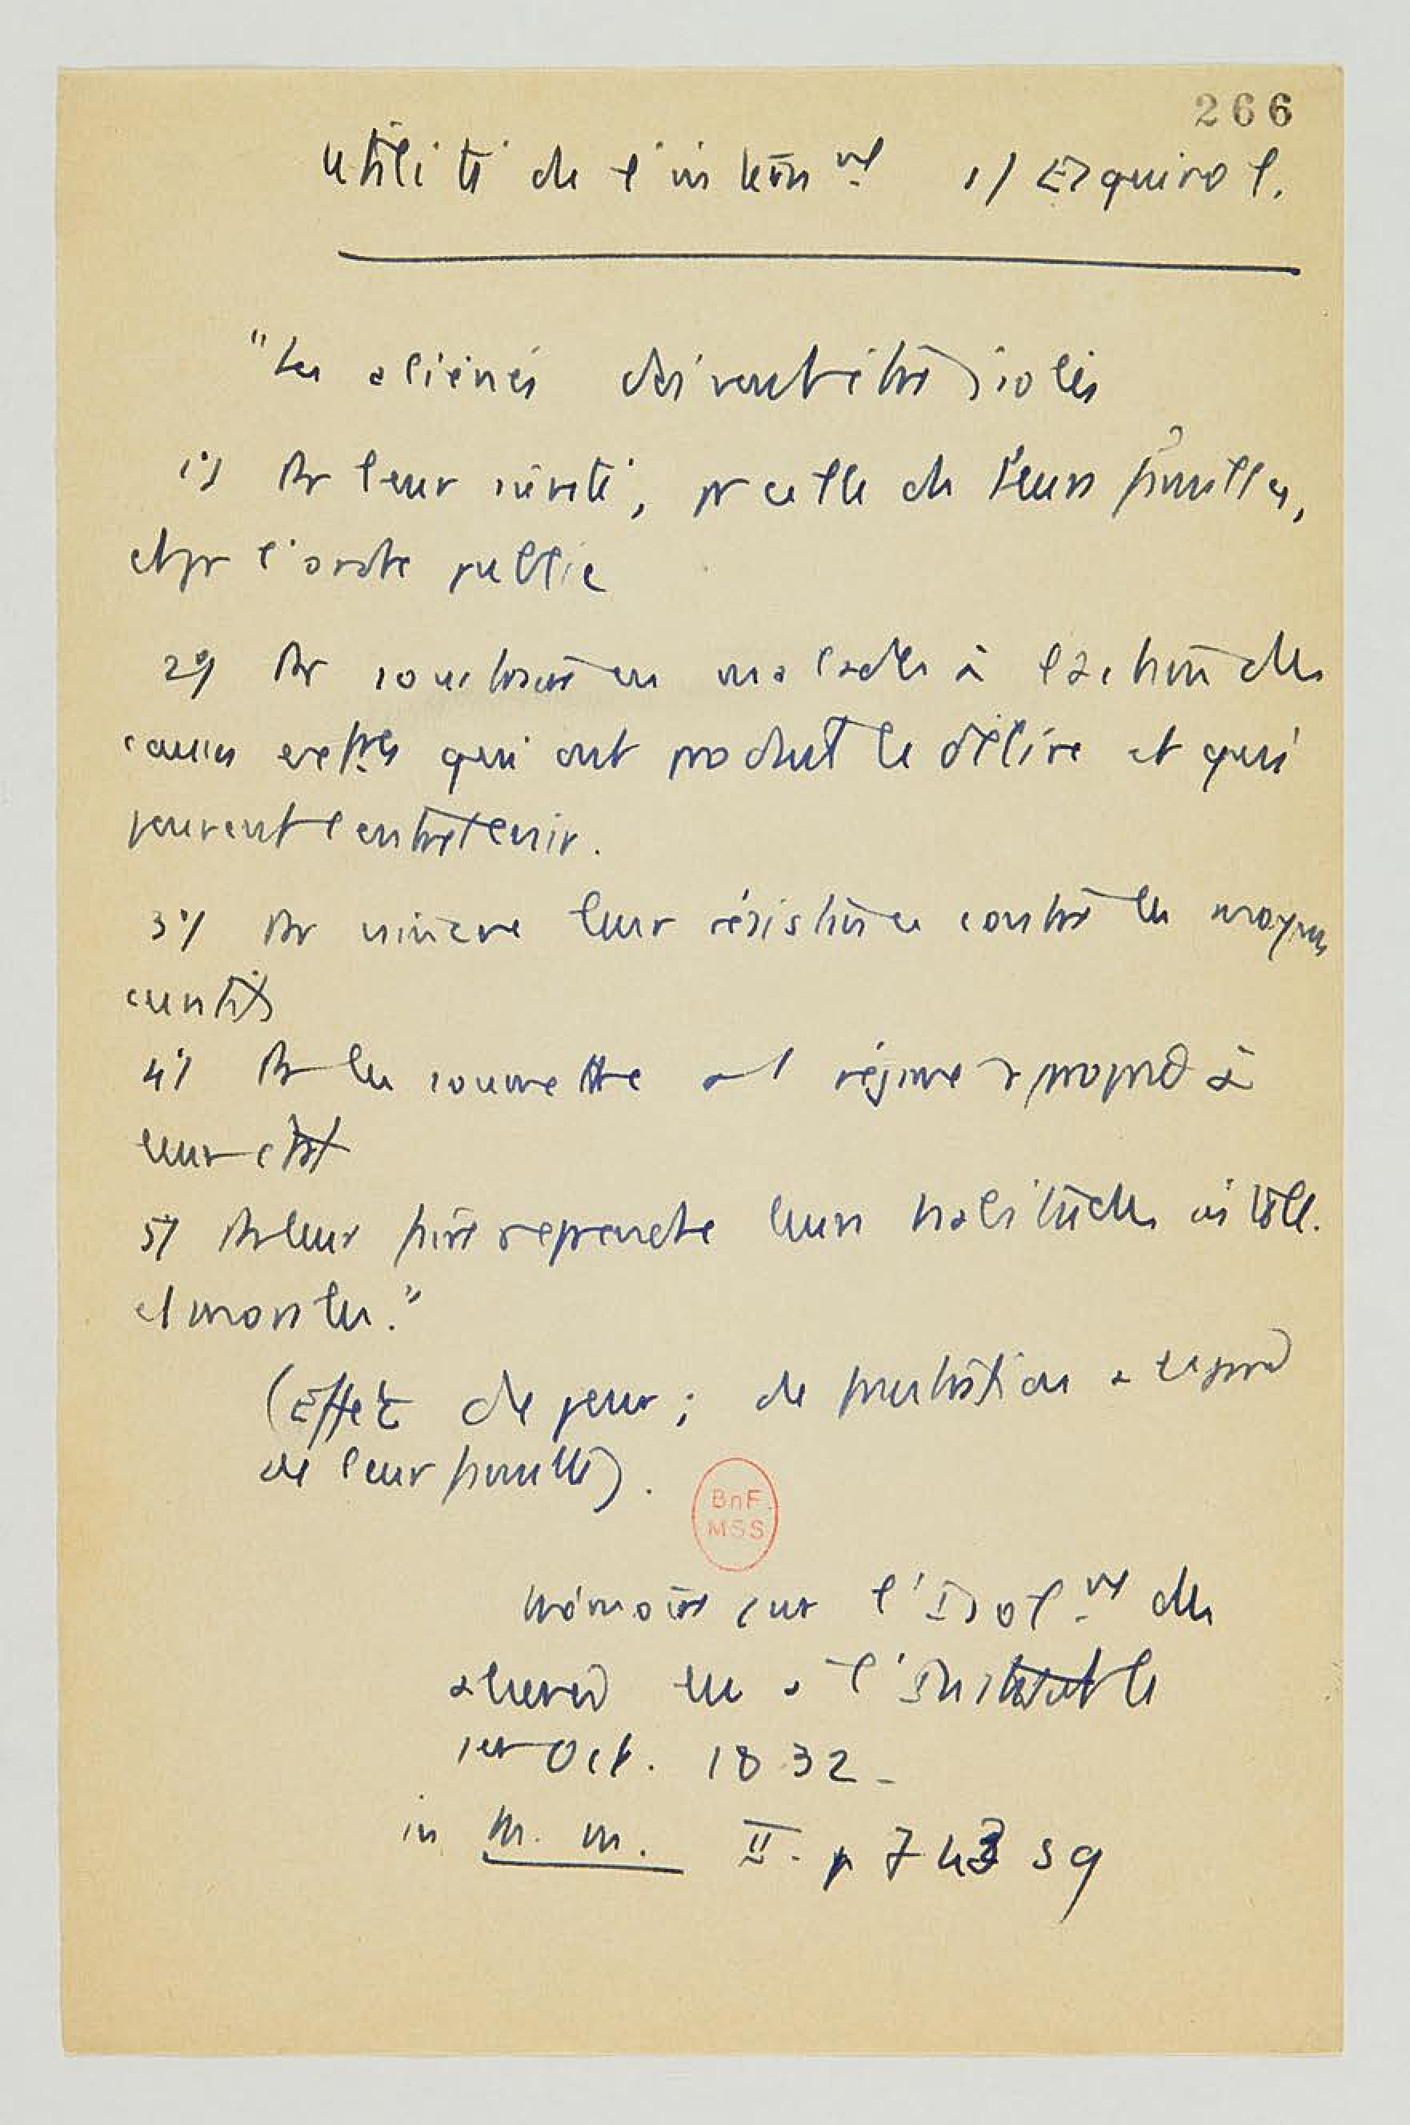 266
Utilité de l'intern^nt 1/ Esquirol.
"Les aliénés doivent être isolés
1°/ Pr leur sûreté, pr celle de leurs familles,
et pr l'ordre public
2°/ Pr soustraire ces malades à l'action des
causes extres qui ont produit le délire et qui
peuvent l'entretenir.
3°/ Pr vaincre leur résistance contre les moyens
curatifs
4°/ Pr les soumettre à 1 régime approprié à
leur état
5°/ Pr leur faire reprendre leurs habitudes intell.
et morales."
(Effet de peur; de
de leur famille).
BnF
MSS
Mémoire sur l'Isol^nt des
aliénés lu à l'Institut le
1er Oct. 1832 -
in M. m. II. p 743 sq